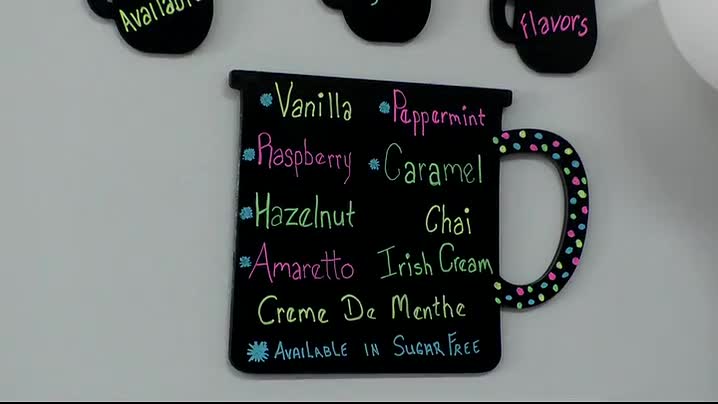 Available
Flavors
* Vanilla * Peppermint
* Raspberry * Caramel
* Hazelnut Chai
* Amaretto Irish Cream
Creme De Menthe
* AVAILABLE IN SUGAR FREE